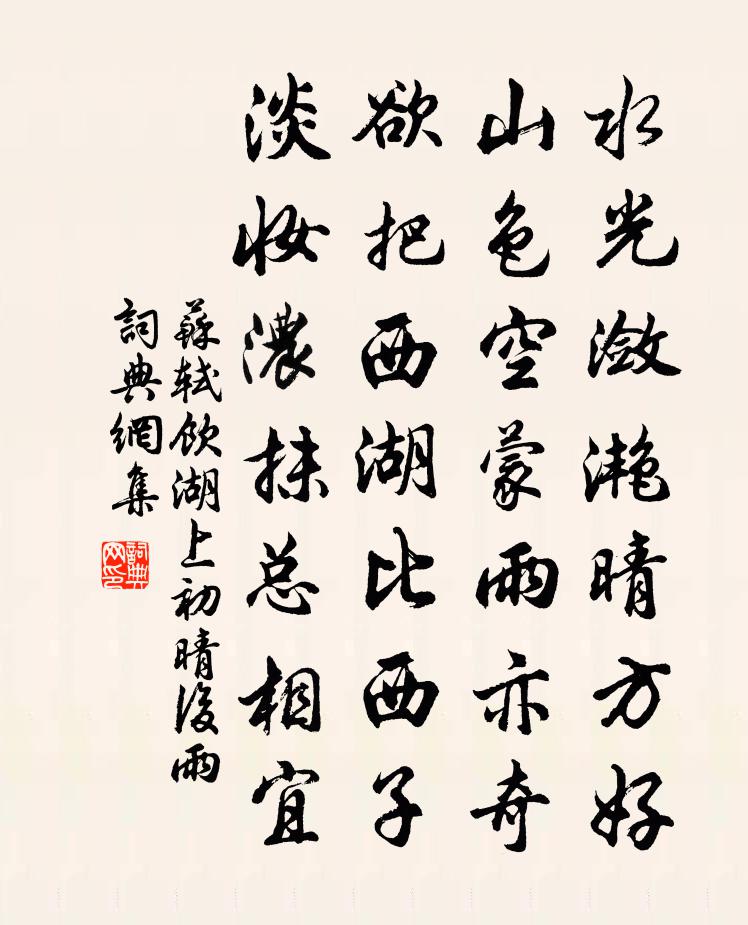 水光瀲灧晴方好
山色空蒙雨亦奇
欲把西湖比西子
淡妝濃抹总相宜
蘇軾飲湖上初晴後雨
詞典網集
詞典网印